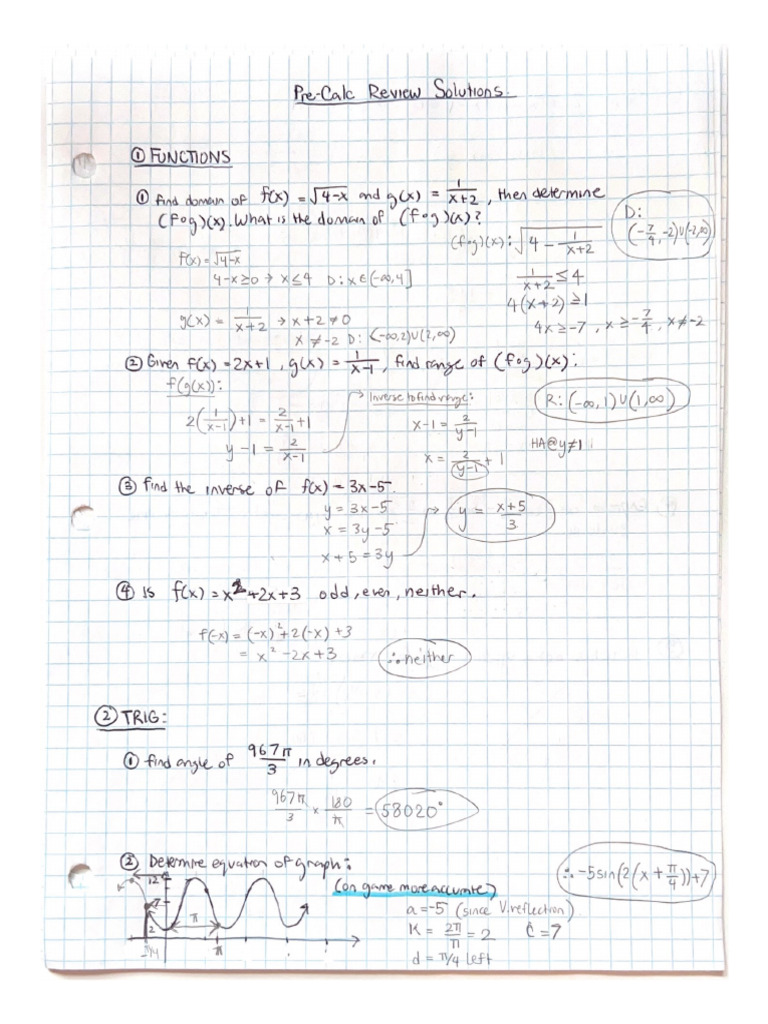 Pre-Calc Review Solutions.
① FUNCTIONS
① find domain of f(x) = √4-x and g(x) = 1/x+2, then determine
(f∘g)(x). What is the domain of (f∘g)(x)?
D:
(-7/4, -2) U (-2, ∞)
(f∘g)(x): √4 - 1/x+2
f(x) = √4-x
4-x ≥ 0 → x ≤ 4 D: x ∈ (-∞, 4]
1/x+2 ≤ 4
4(x+2) ≥ 1
4x ≥ -7, x ≥ -7/4, x ≠ -2
g(x) = 1/x+2 → x+2 ≠ 0
x ≠ -2 D: (-∞, 2) U (2, ∞)
② Given f(x) = 2x+1, g(x) = 1/x-1, find range of (f∘g)(x):
f(g(x)):
2(1/x-1)+1 = 2/x-1 + 1
y - 1 = 2/x-1
→ Inverse to find range:
x - 1 = 2/y-1
x = 2/y-1 + 1
R: (-∞, 1) U (1, ∞)
HA@y≠1
③ find the inverse of f(x) = 3x-5.
y = 3x-5
x = 3y-5
x + 5 = 3y
→ y = x+5/3
④ Is f(x) = x²+2x+3 odd, even, neither.
f(-x) = (-x)²+2(-x)+3
= x²-2x+3
∴ neither
② TRIG:
① find angle of 967π/3 in degrees.
967π/3 × 180/π = 58020°
② Determine equation of graph:
(on game more accurate)
12
7
2
π
-π/4
π
a = -5 (since V. reflection)
K = 2π/π = 2 C = 7
d = π/4 left
∴ -5sin(2(x+π/4))+7